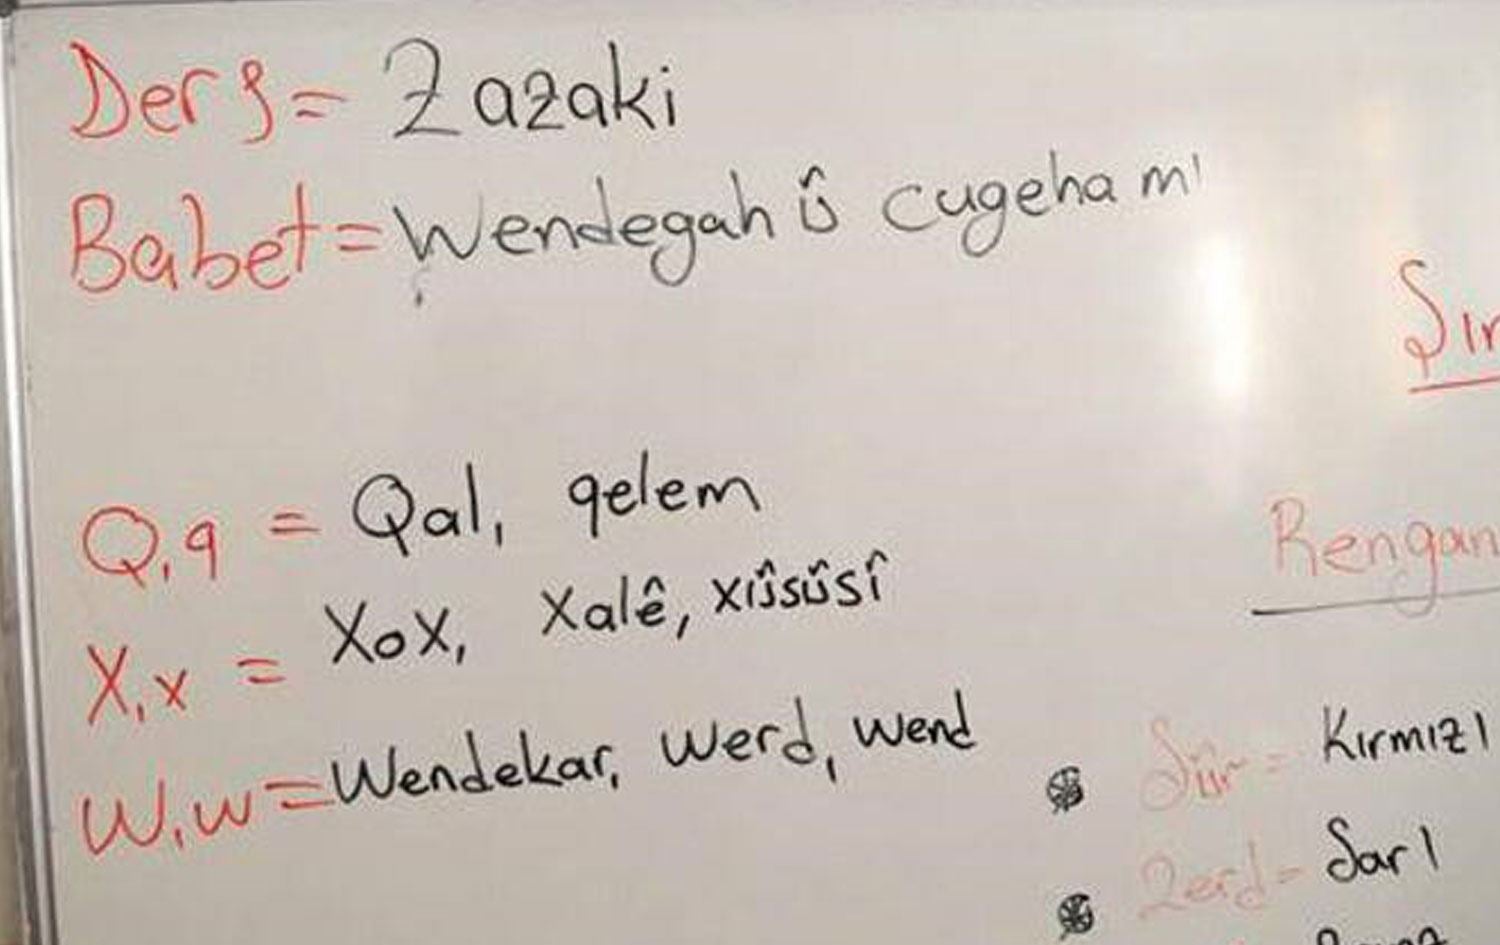 Ders = Zazaki
Babet = Wendegah û cugeha mı
Q, q = Qal, qelem
X, x = XoX, Xalê, xûsûsî
W, w = Wendekar, werd, wend
Rengan
Sûr = Kırmızı
Zerd = Sarı